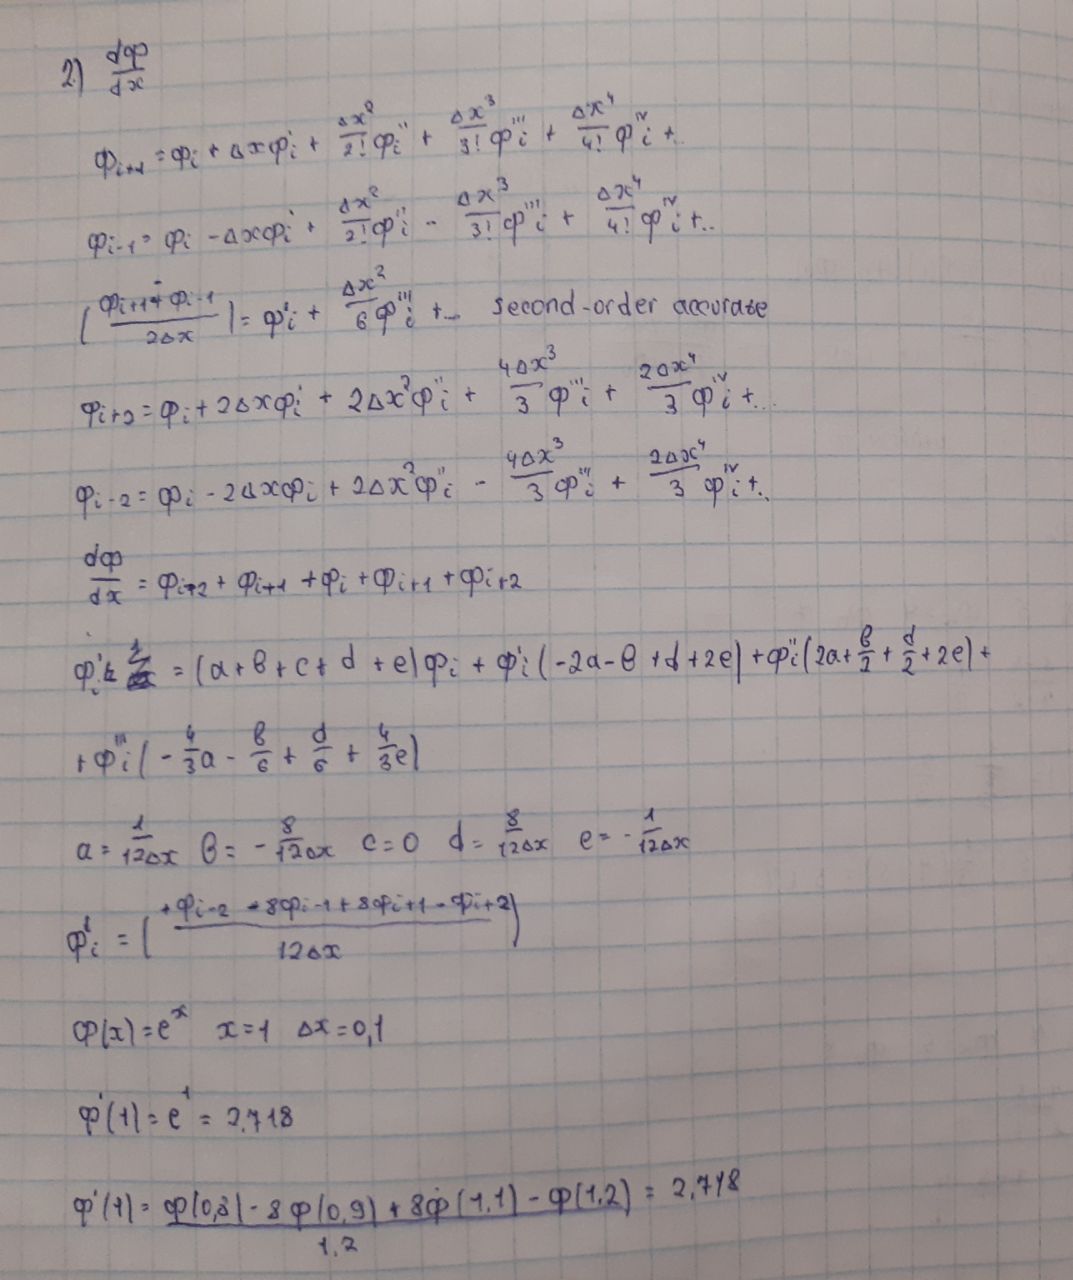 2) dφ/dx
φᵢ₊₁ = φᵢ + Δxφ'ᵢ + Δx²/2! φ''ᵢ + Δx³/3! φ'''ᵢ + Δx⁴/4! φᴵⱽᵢ + ..
φᵢ₋₁ = φᵢ - Δxφ'ᵢ + Δx²/2! φ''ᵢ - Δx³/3! φ'''ᵢ + Δx⁴/4! φᴵⱽᵢ + ..
(φᵢ₊₁ - φᵢ₋₁ / 2Δx) = φ'ᵢ + Δx²/6 φ'''ᵢ + ... second-order accurate
φᵢ₊₂ = φᵢ + 2Δxφ'ᵢ + 2Δx²φ''ᵢ + 4Δx³/3 φ'''ᵢ + 2Δx⁴/3 φᴵⱽᵢ + ...
φᵢ₋₂ = φᵢ - 2Δxφ'ᵢ + 2Δx²φ''ᵢ - 4Δx³/3 φ'''ᵢ + 2Δx⁴/3 φᴵⱽᵢ + ..
dφ/dx = φᵢ₊₂ + φᵢ₊₁ + φᵢ + φᵢ₊₁ + φᵢ₊₂
φ'ᵢ = (a + b + c + d + e)φᵢ + φ'ᵢ(-2a - b + d + 2e) + φ''ᵢ(2a + b/2 + d/2 + 2e) +
+ φ'''ᵢ(-4/3 a - b/6 + d/6 + 4/3 e)
a = 1/12Δx b = -8/12Δx c = 0 d = 8/12Δx e = -1/12Δx
φ'ᵢ = (+φᵢ₋₂ - 8φᵢ₋₁ + 8φᵢ₊₁ - φᵢ₊₂ / 12Δx)
φ(x) = eˣ x = 1 Δx = 0,1
φ'(1) = e¹ = 2,718
φ'(1) = φ(0,8) - 8φ(0,9) + 8φ(1,1) - φ(1,2) / 1,2 = 2,718